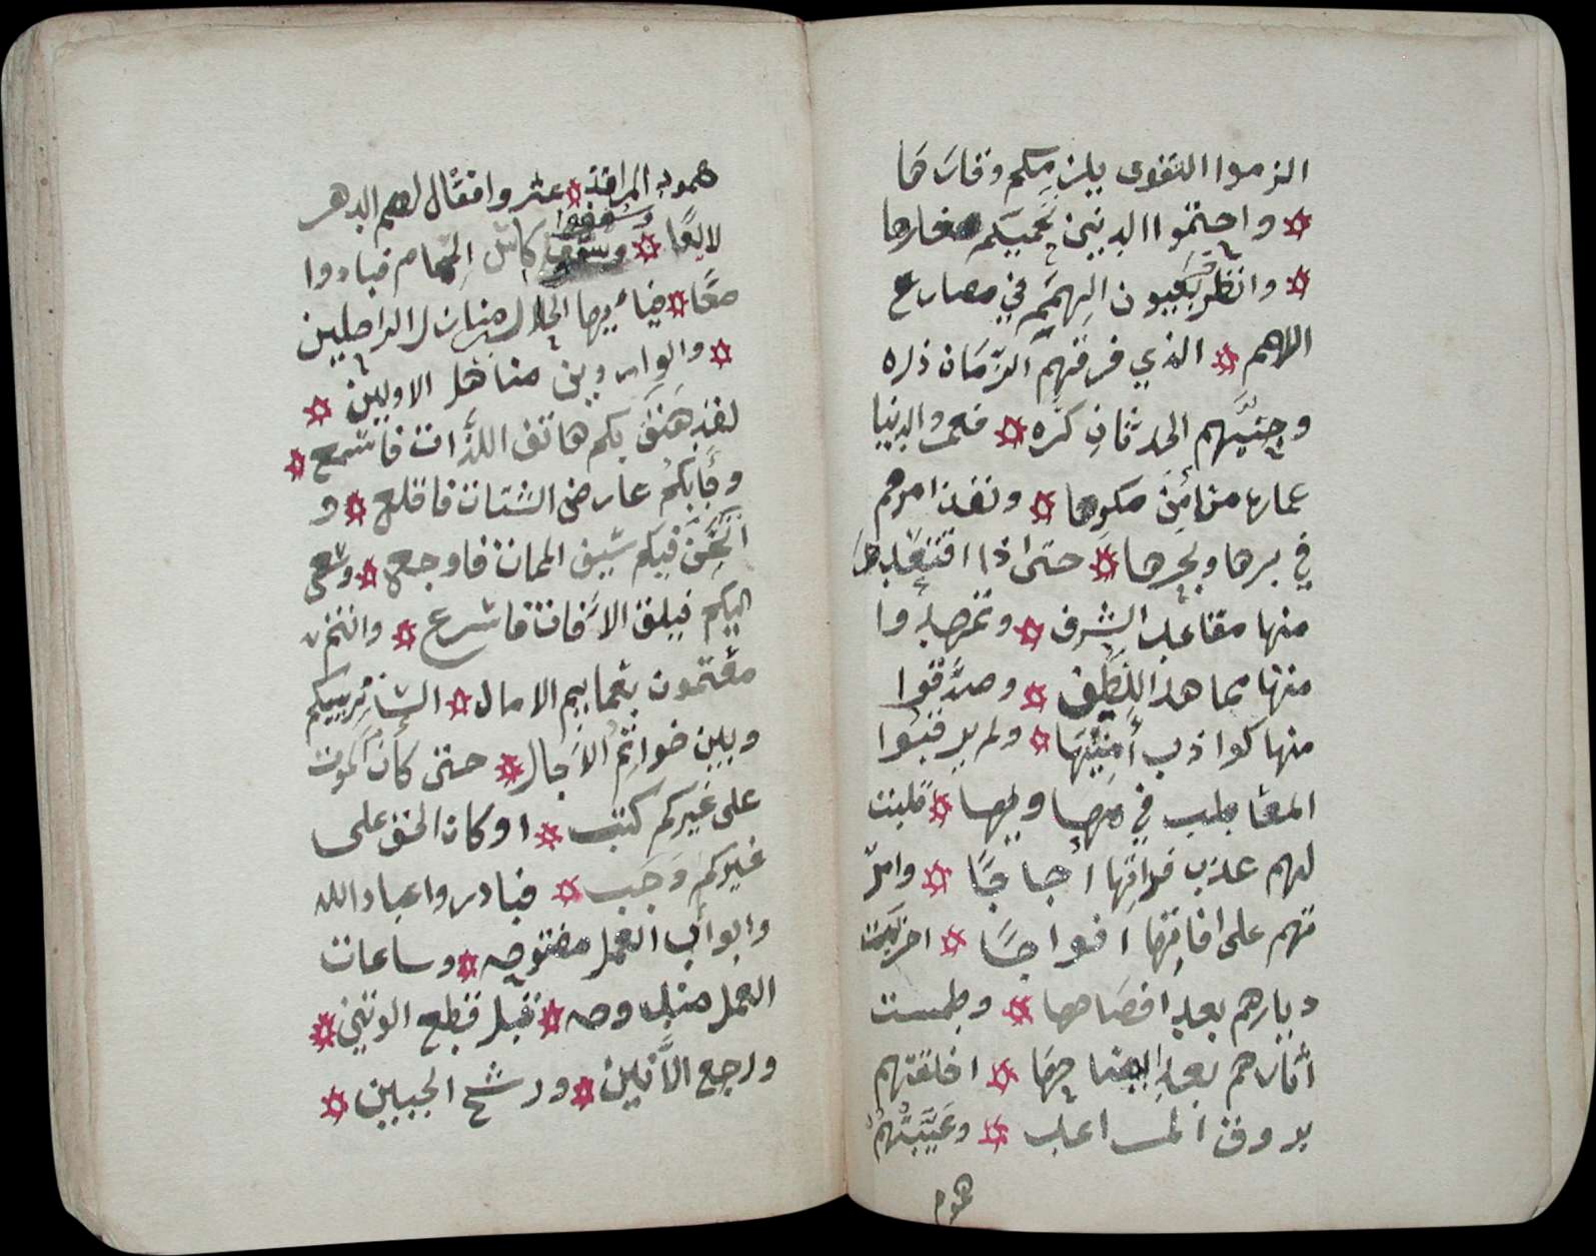 الزموا التقوى يلزمكم وقارها
واحتموا الدنيى يحميكم صغارها
وانظر بعيون الهمم في مصارع
الامم الذي فرقهم الزمان ذره
وجنبهم الحدثان كره فعمر والدنيا
عمارها من امن مكرها ونفذ امرهم
في برها وبحرها حتى اذا اقتعدوا
منها مقاعد الشرف وتمهدوا
منها مماهد اللطف وصدقوا
منها كواذب أمنيتها ولم يرقبوا
المعاطب في مهاويها قلبت
لهم عذب فراتها اجاجا وامر
تهم على افاتها افواجا اخربت
ديارهم بعد افصاحها وطمست
آثارهم بعد ايضاحها اخلفتهم
بروق المساعد وغيبتهم
هموم
همود المراقد عثروا فقال لهم الدهر
لا لعًا وسقوا كاس الحمام فبادوا
معًا فيا ايها الحلال منازل الراحلين
والواردين مناهل الاولين
لقد هتف بكم هاتف اللذات فاسمع
وفابكم عارض الشتات فاقلع و
اثخن فيكم سيف الممات فاوجع وسعى
اليكم فيلق الآفات فاسرع وانتم
مغتمون بغمايم الامال الساتر بينكم
وبين خواتم الاجال حتى كان الموت
على غيركم كتب او كان الحق على
غيركم وجب فبادروا عباد الله
وابواب العمل مفتوحه وساعات
العمل مندوحه قبل قطع الوتين
ورجع الأنين ورشح الجبين